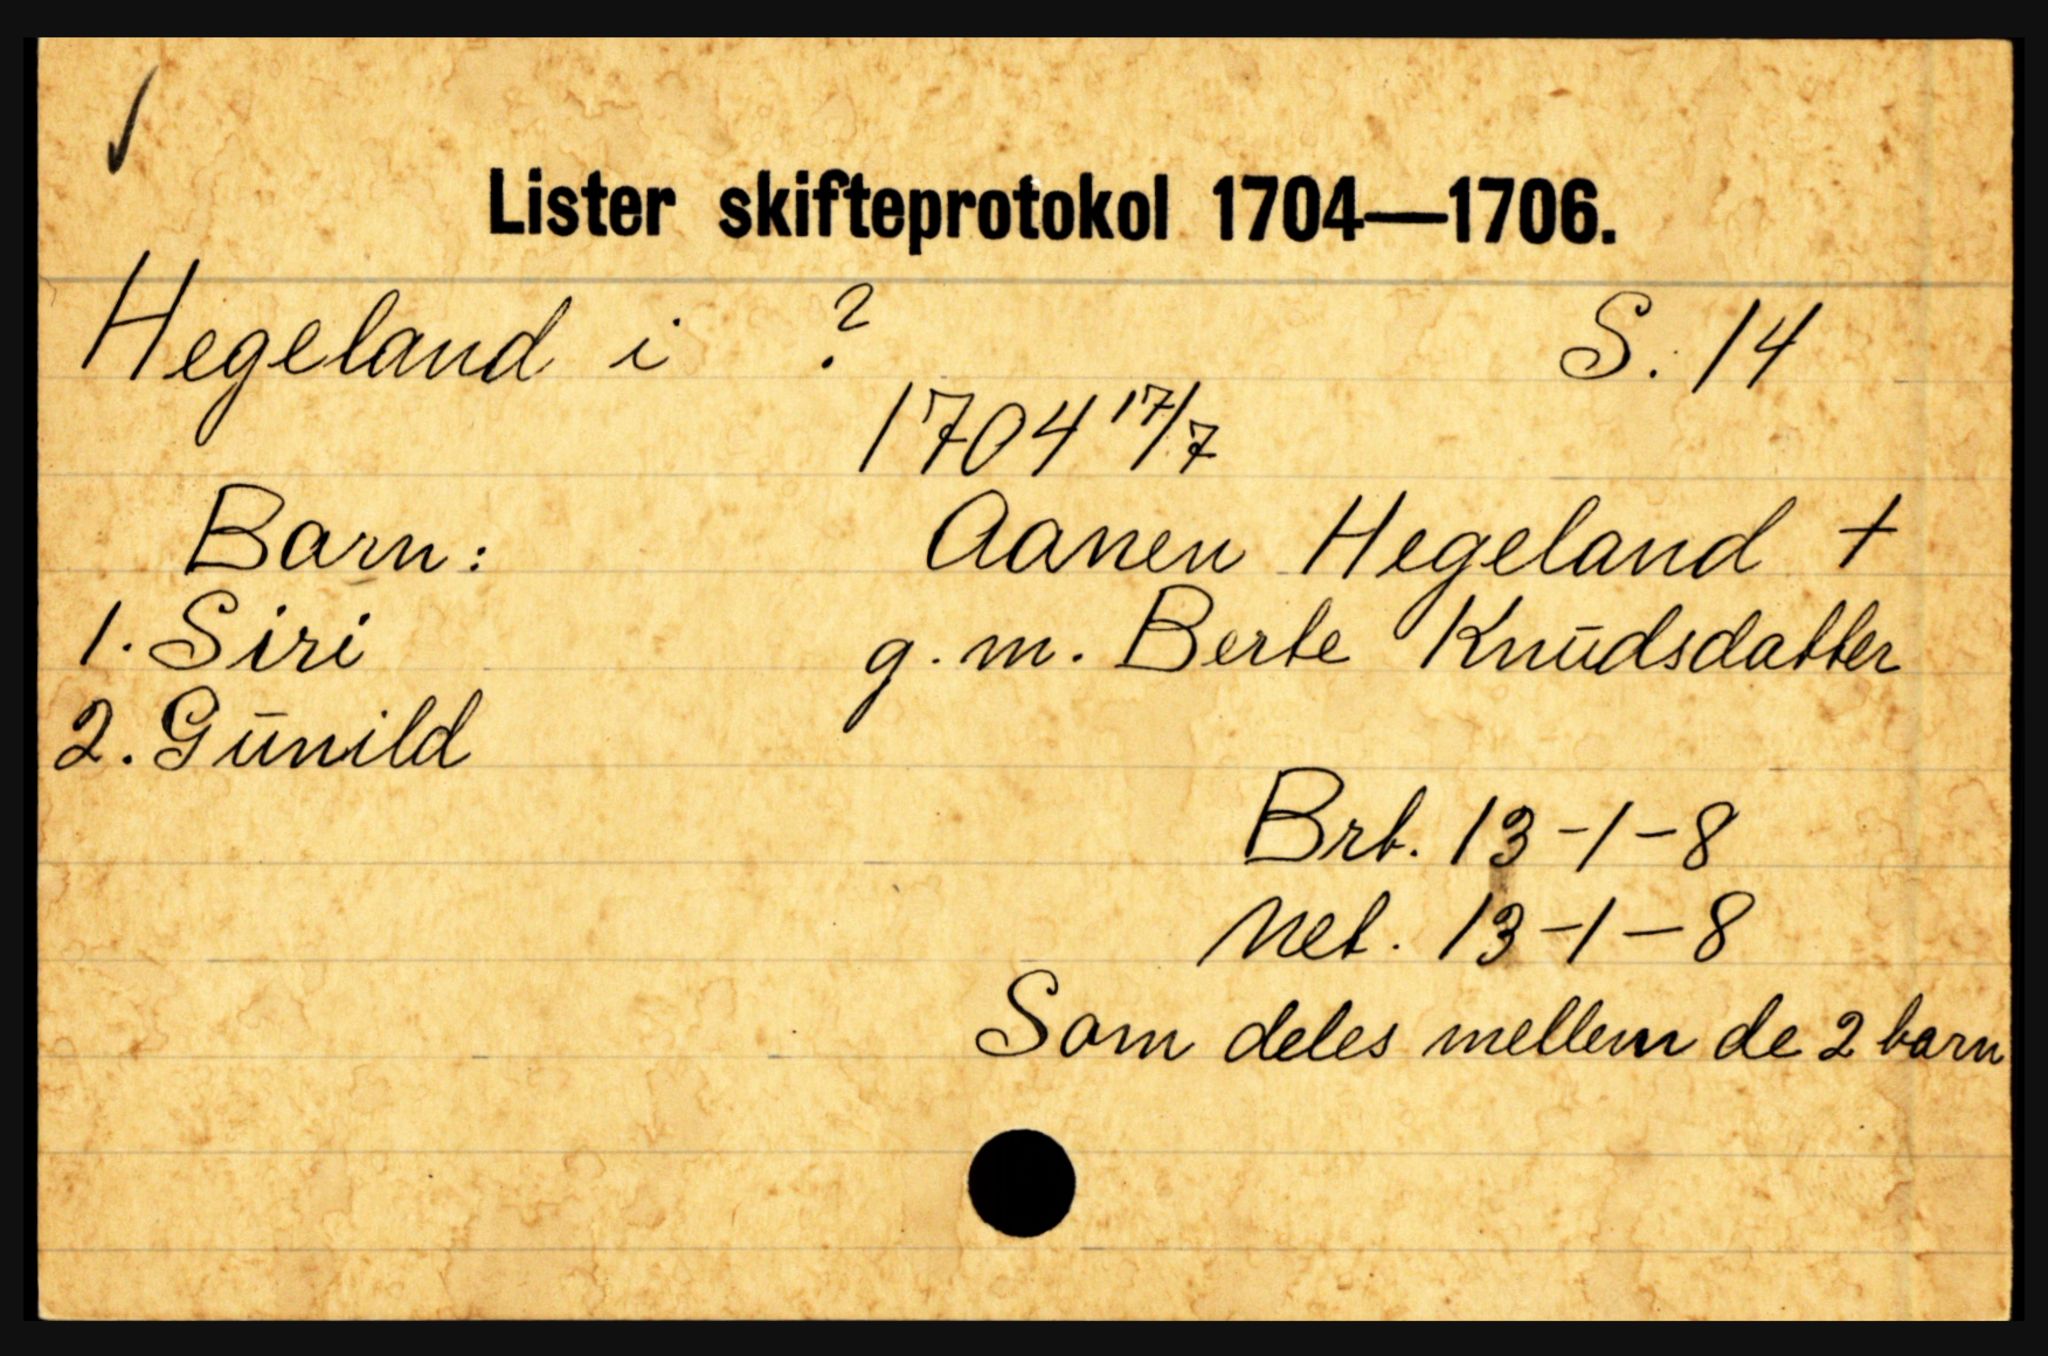 Lister skifteprotokol 1704—1706.
Hegeland i ? S. 14
1704 17/7
Barn: Aanen Hegeland +
1. Siri g. m. Berte Knūdsdatter
2. Gūnild
Brt. 13-1-8
Net. 13-1-8
Som deles mellem de 2 barn